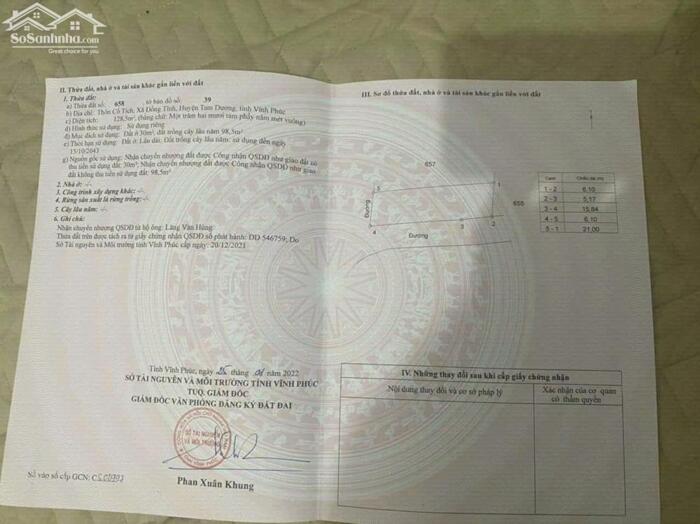 SoSanhnha.com
Great choice for you
II. Thửa đất, nhà ở và tài sản khác gắn liền với đất
1. Thửa đất:
a) Thửa đất số: 658 , tờ bản đồ số: 39
b) Địa chỉ: Thôn Cổ Tích, Xã Đồng Tĩnh, Huyện Tam Dương, tỉnh Vĩnh Phúc
c) Diện tích: 128,5m², (bằng chữ: Một trăm hai mươi tám phẩy năm mét vuông)
d) Hình thức sử dụng: Sử dụng riêng
đ) Mục đích sử dụng: Đất ở 30m²; đất trồng cây lâu năm 98,5m²
e) Thời hạn sử dụng: Đất ở: Lâu dài; Đất trồng cây lâu năm: sử dụng đến ngày
15/10/2043
g) Nguồn gốc sử dụng: Nhận chuyển nhượng đất được Công nhận QSDĐ như giao đất có
thu tiền sử dụng đất: 30m²; Nhận chuyển nhượng đất được Công nhận QSDĐ như giao
đất không thu tiền sử dụng đất: 98,5m²
2. Nhà ở: -/-
3. Công trình xây dựng khác: -/-
4. Rừng sản xuất là rừng trồng: -/-
5. Cây lâu năm: -/-
6. Ghi chú:
Nhận chuyển nhượng QSDĐ từ hộ ông: Lăng Văn Hùng;
Thửa đất trên được tách ra từ giấy chứng nhận QSDĐ số phát hành: DD 546759; Do
Sở Tài nguyên và Môi trường tỉnh Vĩnh Phúc cấp ngày: 20/12/2021
Tỉnh Vĩnh Phúc, ngày 25 tháng 01 năm 2022
SỞ TÀI NGUYÊN VÀ MÔI TRƯỜNG TỈNH VĨNH PHÚC
TUQ. GIÁM ĐỐC
GIÁM ĐỐC VĂN PHÒNG ĐĂNG KÝ ĐẤT ĐAI
SỞ TÀI NGUYÊN
VÀ MÔI TRƯỜNG
Phan Xuân Khung
Số vào sổ cấp GCN: CS
III. Sơ đồ thửa đất, nhà ở và tài sản khác gắn liền với đất
657
5
1
655
Đường
4
3
2
Đường
Cạnh Chiều dài (m)
1 - 2 6,10
2 - 3 5,17
3 - 4 15,84
4 - 5 6,10
5 - 1 21,00
IV. Những thay đổi sau khi cấp giấy chứng nhận
Nội dung thay đổi và cơ sở pháp lý
Xác nhận của cơ quan
có thẩm quyền